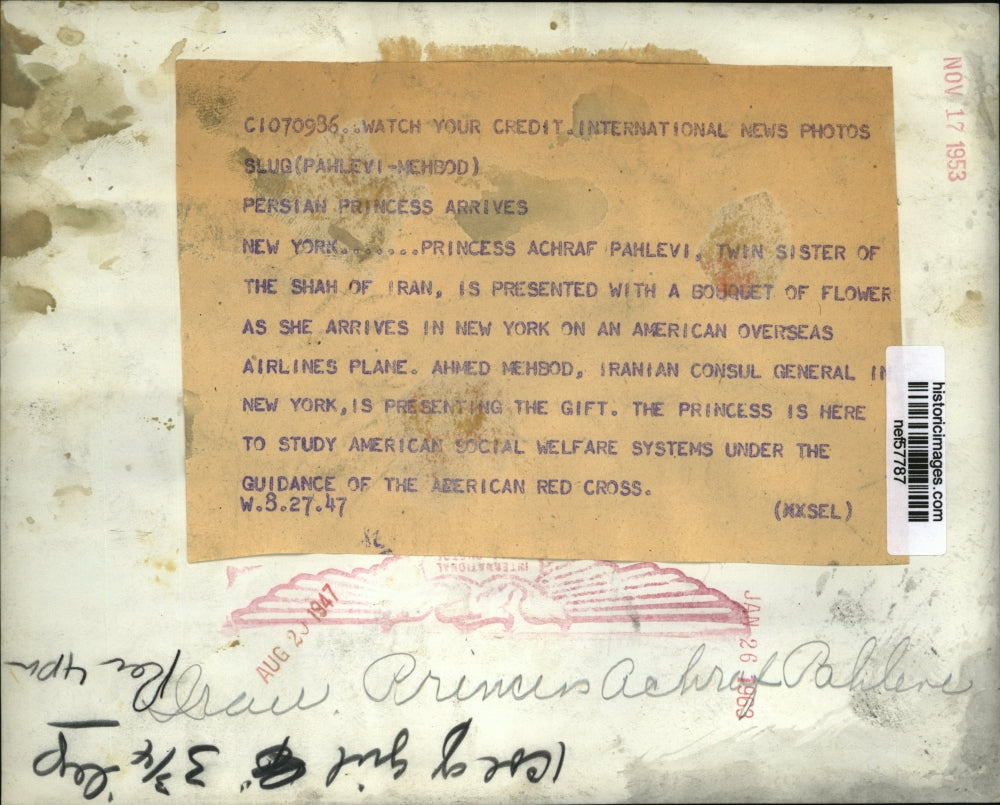 C1070986..WATCH YOUR CREDIT.INTERNATIONAL NEWS PHOTOS
SLUG(PAHLEVI-MEHBOD)
PERSIAN PRINCESS ARRIVES
NEW YORK.......PRINCESS ACHRAF PAHLEVI, TWIN SISTER OF
THE SHAH OF IRAN, IS PRESENTED WITH A BOUQUET OF FLOWER
AS SHE ARRIVES IN NEW YORK ON AN AMERICAN OVERSEAS
AIRLINES PLANE. AHMED MEHBOD, IRANIAN CONSUL GENERAL IN
NEW YORK,IS PRESENTING THE GIFT. THE PRINCESS IS HERE
TO STUDY AMERICAN SOCIAL WELFARE SYSTEMS UNDER THE
GUIDANCE OF THE AMERICAN RED CROSS.
W.8.27.47 (MXSEL)
NOV 17 1953
historicimages.com
nef57787
INTERNATIONAL
AUG 1947
JAN 26 1963
Iran. Princess Achraf Pahlevi
3 3/4